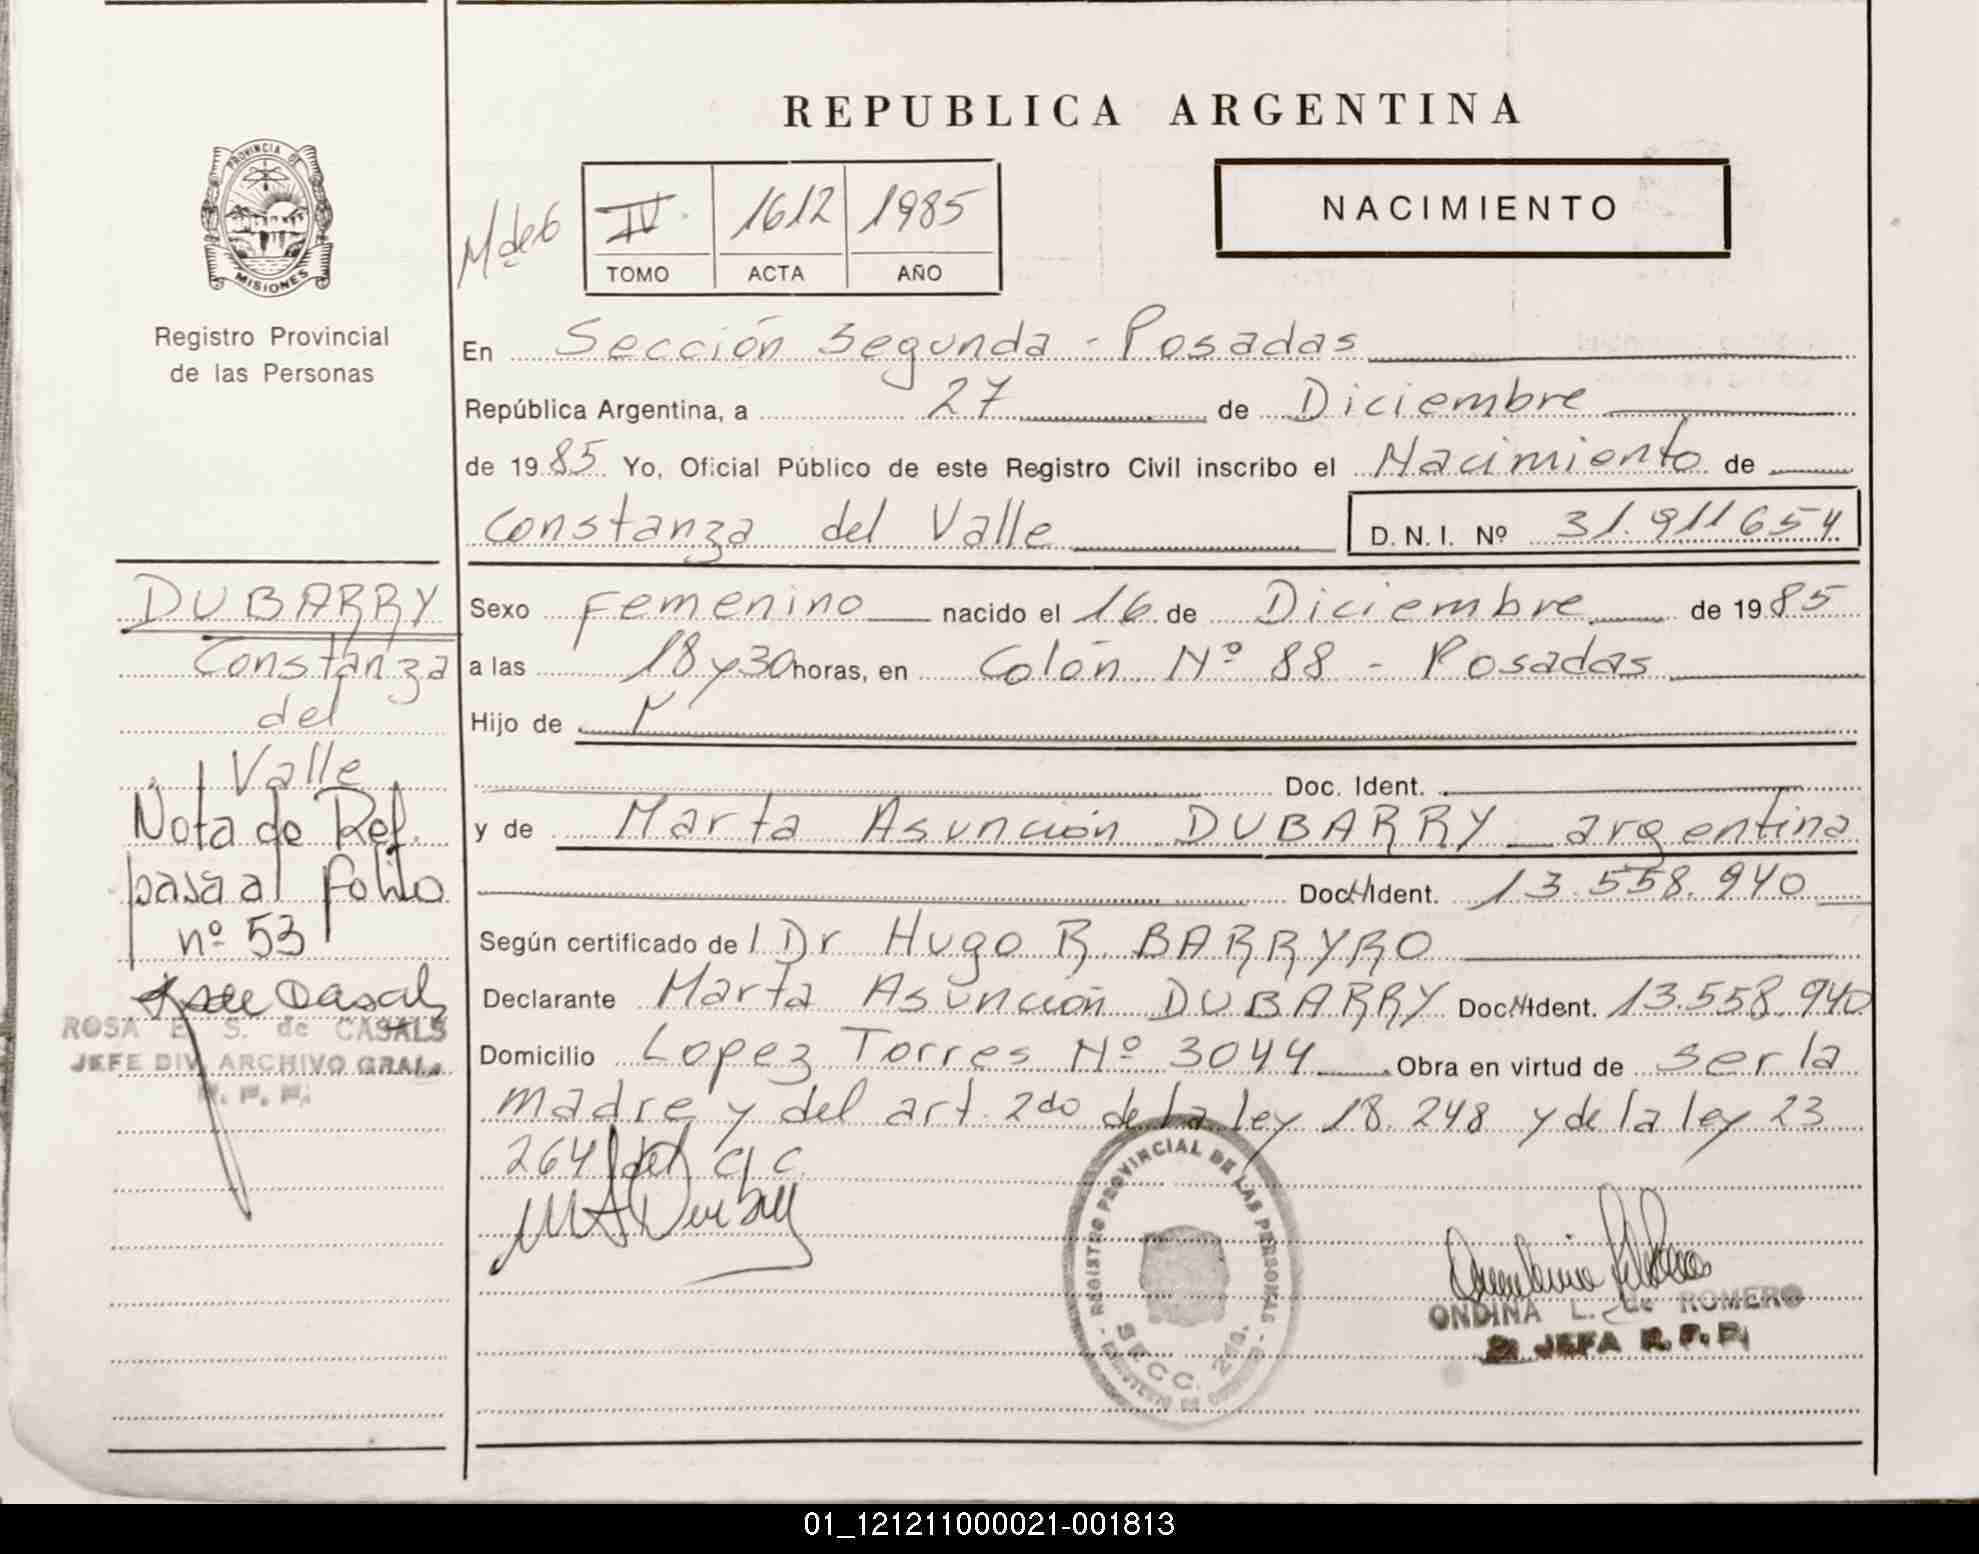 REPUBLICA ARGENTINA
PROVINCIA DE
MISIONES
Registro Provincial
de las Personas
M de 6
IV. 1612 1985
TOMO ACTA AÑO
NACIMIENTO
En Sección Segunda - Posadas
República Argentina, a 27 de Diciembre
de 1985 Yo, Oficial Público de este Registro Civil inscribo el Nacimiento de
Constanza del Valle
D. N. I. Nº 31.911654
DUBARRY
Constanza
del
Valle
Nota de Ref.
pasa al folio
nº 53
ROSA E. S. de CASALS
JEFE DIV. ARCHIVO GRAL.
R. P. P.
Sexo Femenino nacido el 16 de Diciembre de 1985
a las 18 y 30 horas, en Colón Nº 88 - Posadas
Hijo de
Doc. Ident.
y de Marta Asunción DUBARRY argentina
Doc. Ident. 13.558.940
Según certificado del Dr Hugo R. BARRYRO
Declarante Marta Asunción DUBARRY Doc. Ident. 13.558.940
Domicilio Lopez Torres Nº 3044 Obra en virtud de ser la
madre y del art. 2do de la ley 18.248 y de la ley 23
264 del C. C.
MADubarry
REGISTRO PROVINCIAL DE LAS PERSONAS
SECC. 2da.
ONDINA L. de ROMERO
JEFA R. P. P.
01_121211000021-001813